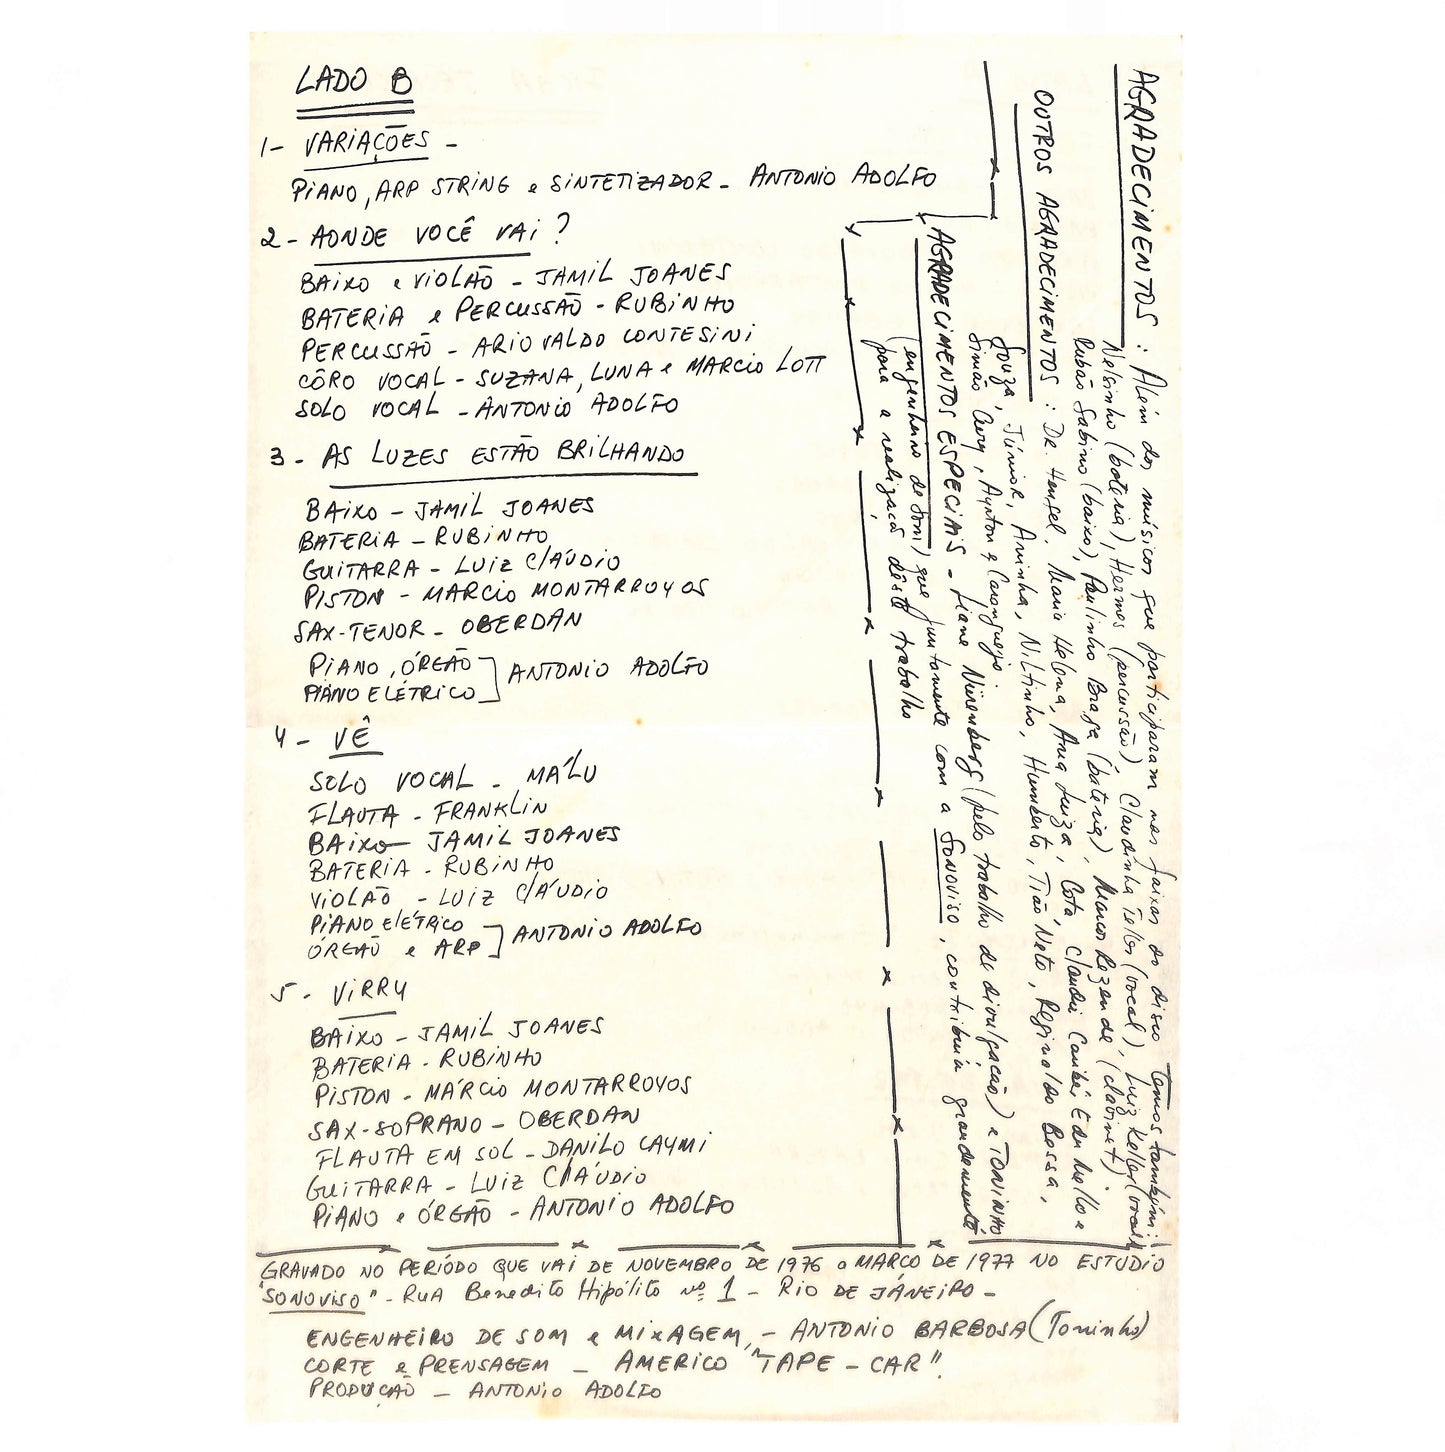 LADO B
1- VARIAÇÕES -
PIANO, ARP STRING e SINTETIZADOR - ANTONIO ADOLFO
2- AONDE VOCÊ VAI?
BAIXO e VIOLÃO - JAMIL JOANES
BATERIA e PERCUSSÃO - RUBINHO
PERCUSSÃO - ARIOVALDO CONTESINI
CÔRO VOCAL - SUZANA, LUNA e MARCIO LOTT
SOLO VOCAL - ANTONIO ADOLFO
3- AS LUZES ESTÃO BRILHANDO
BAIXO - JAMIL JOANES
BATERIA - RUBINHO
GUITARRA - LUIZ CLÁUDIO
PISTON - MARCIO MONTARROYOS
SAX-TENOR - OBERDAN
PIANO, ÓRGÃO
PIANO ELÉTRICO ] ANTONIO ADOLFO
4- VÊ
SOLO VOCAL - MÁLU
FLAUTA - FRANKLIN
BAIXO - JAMIL JOANES
BATERIA - RUBINHO
VIOLÃO - LUIZ CLÁUDIO
PIANO ELÉTRICO
ÓRGÃO e ARP ] ANTONIO ADOLFO
5- VIRRY
BAIXO - JAMIL JOANES
BATERIA - RUBINHO
PISTON - MÁRCIO MONTARROYOS
SAX-SOPRANO - OBERDAN
FLAUTA EM SOL - DANILO CAYMI
GUITARRA - LUIZ CLÁUDIO
PIANO e ÓRGÃO - ANTONIO ADOLFO
AGRADECIMENTOS: Além dos músicos que participaram nas faixas do disco temos também:
Nelsinho (bateria), Hermes (percussão), Claudinha Telles (vocal), Luiz Keller (vocal)
Rubão Sabino (baixo), Paulinho Braga (bateria), Marcos Rezende (clavinet).
OUTROS AGRADECIMENTOS: Dr. Hensel, Maria Helena, Ana Luiza, Cota, Claudii Edu Mello e
Souza, Júnior, Aninha, Niltinho, Humberto, Tião Neto, Reginaldo Bessa,
Simão, Ayrton e Caranguejo
AGRADECIMENTOS ESPECIAIS - Liane Nirenberg (pelo trabalho de divulgação) e TONINHO
(engenheiro de som) que juntamente com a Sonoviso, contribuiu grandemente
para a realizaçã dêste trabalho
GRAVADO NO PERÍODO QUE VAI DE NOVEMBRO DE 1976 a MARÇO DE 1977 NO ESTUDIO
"SONOVISO" - RUA Benedito Hipólito nº 1 - RIO DE JÁNEIRO -
ENGENHEIRO DE SOM e MIXAGEM - ANTONIO BARBOSA (Toninho)
CORTE e PRENSAGEM - AMERICO "TAPE - CAR"
PRODUÇÃO - ANTONIO ADOLFO